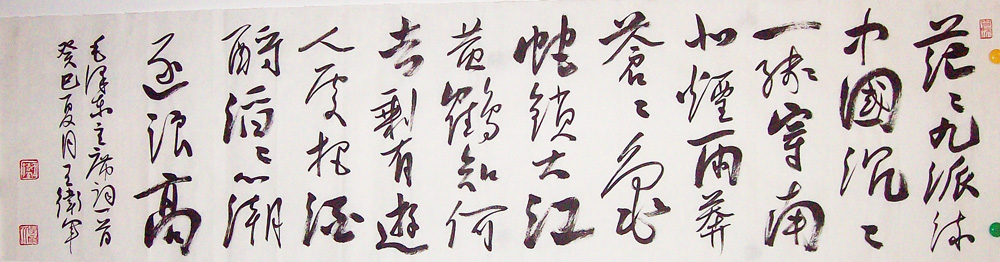 茫〻九派流
中國沉〻
一線穿南
北煙雨莽
蒼〻龜
蛇鎖大江
黃鶴知何
去剩有遊
人處把酒
酹滔〻心潮
逐浪高
毛澤東主席詞一首
癸巳夏月王衛軍